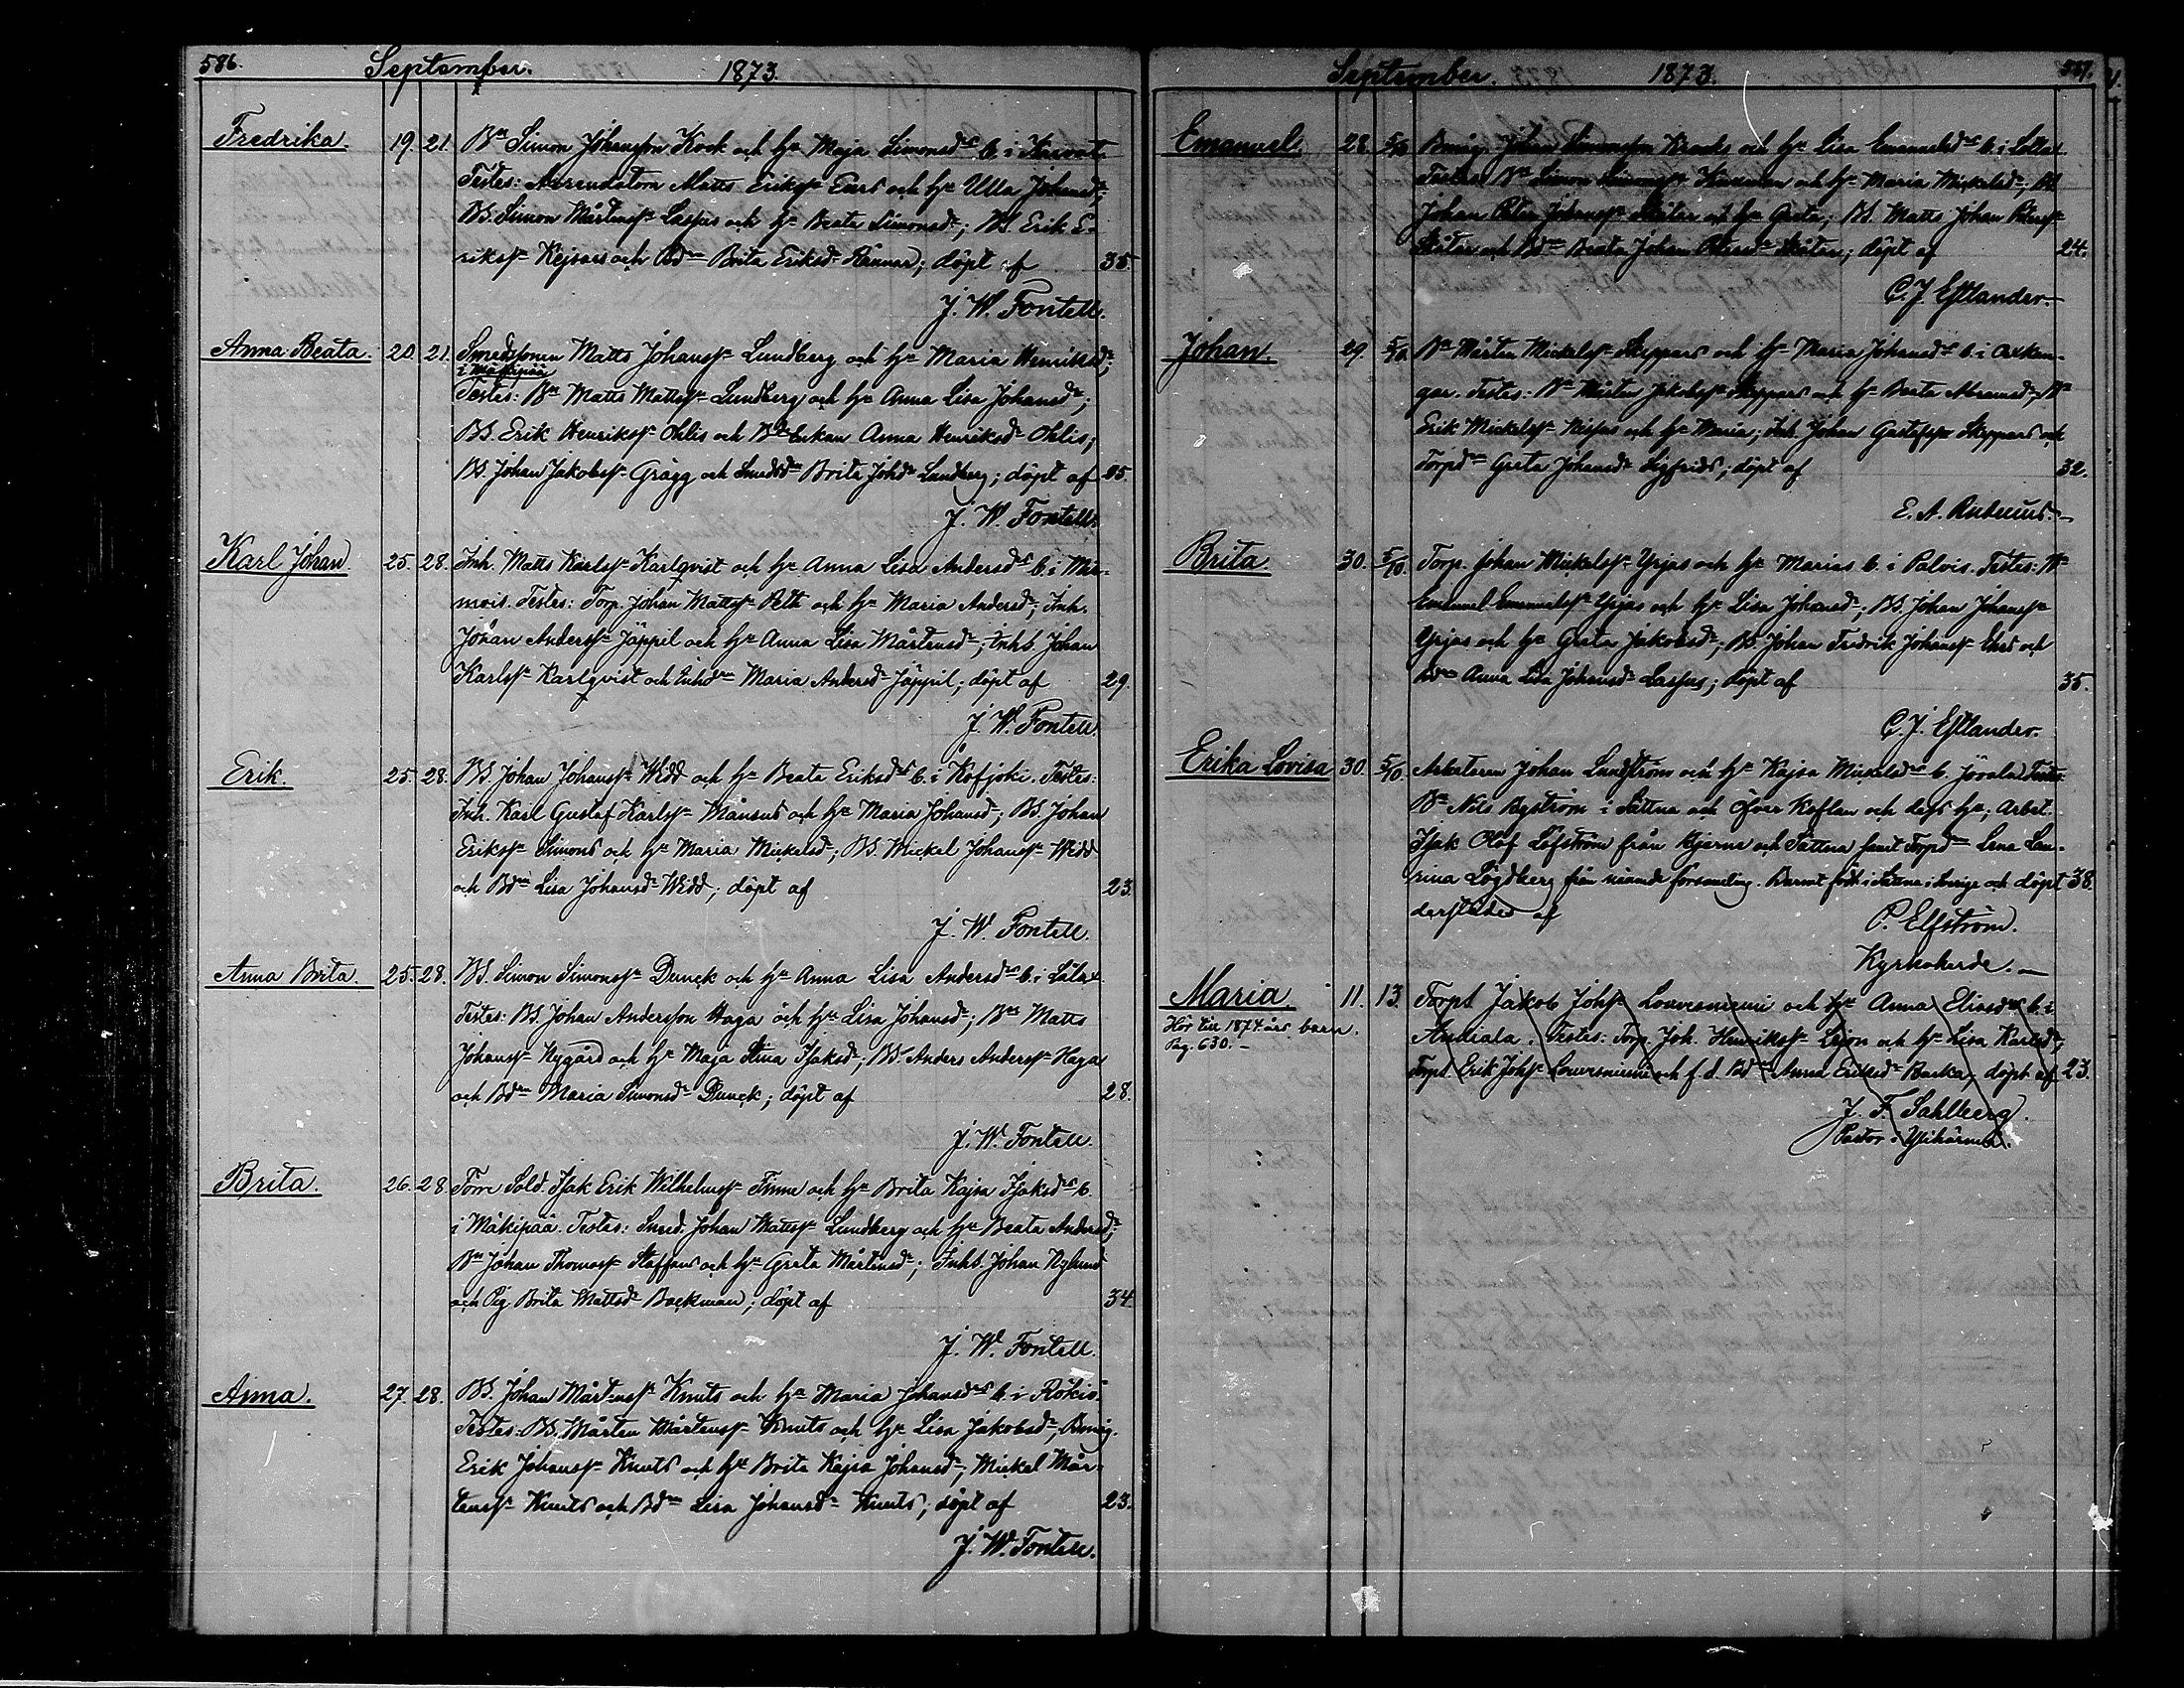 586. September. 1873.
Fredrika. 19. 21. Bn Simon Johansson Kock och h. Maja Simonsdr b. i
Testes: Arrendatorn Matts Erikss. Eurs och h. Ulla Johansdr;
BS. Simon Mårtenss. Laspas och h. Beata Simonsdr; BS. Erik E-
rikss. Kejsars och Bdn Brita Eriksdr Rännar; döpt af 35.
J. W. Fontell.
Anna Beata. 20. 21. Smedssonen Matts Johanss. Lundberg och h. Maria Henriksdr;
i Mäkipää
Testes: Bn Matts Mattss. Lundberg och h. Anna Lisa Johansdr;
BS. Erik Henrikss. Ohlis och BdeEnkan Anna Henriksdr Ohlis;
BS. Johan Jakobss. Grägg och Smedsdn Brita Johdr Lundberg; döpt af 25.
J. W. Fontell.
Karl Johan. 25. 28. Inh. Matts Karlss. Karlqvist och h. Anna Lisa Andersdr b. i Mie-
mois. Testes: Torp. Johan Mattss. Pelt och h. Maria Andersdr; Inh.
Johan Anderss. Jäppil och h. Anna Lisa Mårtensdr; Inhs. Johan
Karlss. Karlqvist och Inhdn Maria Andersdr Jäppil; döpt af 29.
J. W. Fontell.
Erik. 25. 28. BS. Johan Johanss. Widd och h. Beata Eriksdr b. i Kofjoki. Testes:
Inh. Karl Gustaf Karlss. Månsus och h. Maria Johansd; BS. Johan
Erikss. Simons och h. Maria Mickelsdr; BS. Mickel Johanss. Widd
och Bdn Lisa Johansdr Widd; döpt af 23.
J. W. Fontell.
Anna Brita. 25. 28. BS. Simon Simonss. Dunck och h. Anna Lisa Andersdr b. i Lålax
Testes: BS. Johan Andersson Haga och h. Lisa Johansdr; Bn Matts
Johanss. Nygård och h. Maja Stina Isaksdr; BS. Anders Anderss. Haga
och Bdn Maria Simonsdr Dunck; döpt af 28.
J. W. Fontell.
Brita. 26. 28. Förre Sold. Isak Erik Wilhelmss. Finne och h. Brita Kajsa Isaksdr b.
i Mäkipää. Testes: Smed. Johan Mattss. Lundberg och h. Beata Andersdr;
Bn Johan Thomass. Staffans och h. Greta Mårtensdr; Inhs. Johan Nylund
och Pig. Brita Mattsdr Backman; döpt af 34.
J. W. Fontell.
Anna. 27. 28. BS. Johan Mårtenss. Knuts och h. Maria Johansdr b. i Rökiö
Testes: BS. Mårten Mårtenss. Knuts och h. Lisa Jakobsdr; Bmåg.
Erik Johanss. Knuts och h. Brita Kajsa Johansdr; Mickel Mår-
tenss. Knuts och Bdn Lisa Johansdr Knuts; döpt af 23.
J. W. Fontell.
September. 1873. 587.
Emanuel. 28. 5/10 Bmåg. Johan Simonsson Krooks och h. Lisa Emanuelsdr b. i Lålax
Testes: Bn Simon Simonss. och h. Maria Mickelsdr; BS.
Johan Peter Johanss. Skåtar och h. Greta; BS. Matts Johan Peterss.
Skåtar och Bdn Beata Johan Petersdr Skåtar; döpt af 24.
C. J. Estlander.
Johan. 29. 5/10. Bn Mårten Mickelss. Skeppars och h. Maria Johansdr b. i Oxkan-
gar. Testes: Bn Mårten Jakobss. Skeppars och h. Beata Abramsdr; Bn
Erik Mickelss. och h. Maria; Inh. Johan Gustafsson Skeppars och
Torpdn Greta Johansdr Sigfrids; döpt af 32.
E. A.
Brita. 30. 5/10. Torp. Johan Mickelss. Yrjas och h. Marias b. i Palvis. Testes: Bn
Emanuel Emanuelss. Yrjas och h. Lisa Johansdr; BS. Johan Johanss.
Yrjas och h. Greta Jakobsdr; BS. Johan Fredrik Johanss. Ehrs och
Bdn Anna Lisa Johansdr Laspas; döpt af 35.
C. J. Estlander.
Erika Lovisa 30 5/10 Arbetaren Johan Lundström och h. Kajsa Mickelsdr b. Jövala. Testes:
Bn Nils Byström i Sättna och Öfver Keflan och dess h., Arbet.
Isak Olof Löfström från Bjerna och Sättna samt Torpdn Lena Lau-
rina Lögdberg från nämnde församling. Barnet född i Sättna i Sverige och döpt 38.
derstädes af
P. Elfström.
Kyrkoherde.
Maria. 11. 13. Torpt Jakob Johss. Louvesniemi och h. Anna Eliasdr b. i
Hör till 1874 års barn.
Pag. 630.
Andiala. Testes: Torp. Joh. Henrikss. Lejon och h. Lisa Karlsdr;
Torpt Erik Johss. Louvesniemi och f. d. Bdn Anna Eriksdr Backa; döpt af 23.
J. F. Sahlberg.
Pastor i Ylihärmä.